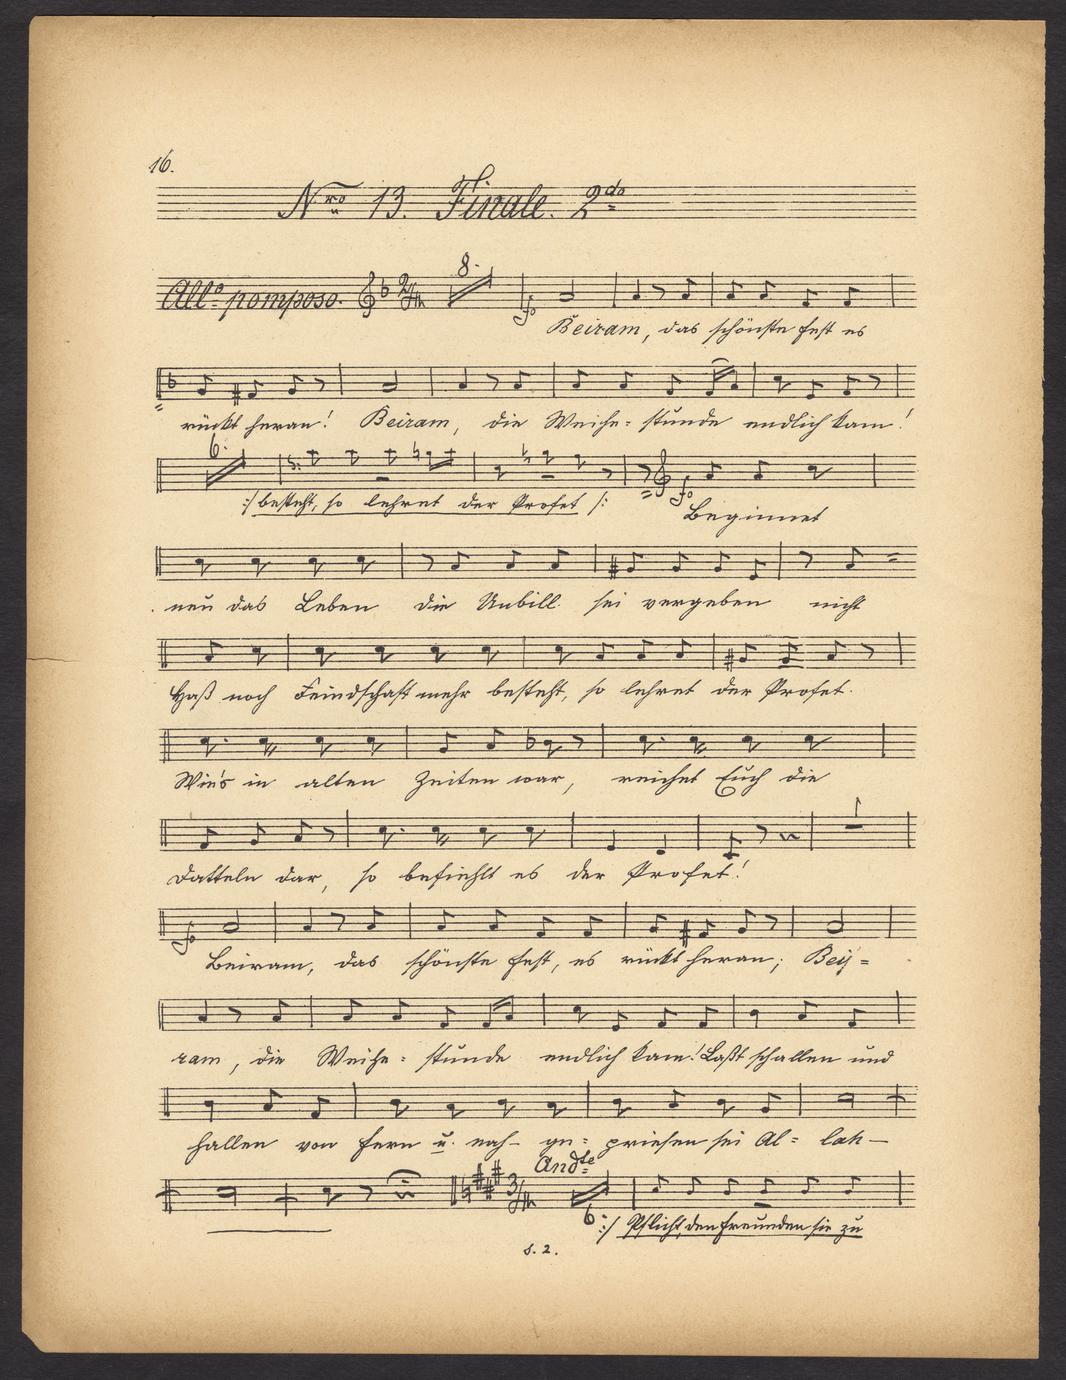 16.
Nro 13. Finale. 2do
Allo pomposo. 2/4 8.
fo
Beiram, das schönste Fest es
rückt heran! Beiram, die Weihe= stunde endlich kam!
6.
:/ besteht, so lehret der Profet /:
fo
Beginnet
neu das Leben die Unbill sei vergeben nicht
Haß noch Feindschaft mehr besteht, so lehret der Profet.
Wie's in alten Zeiten war, reichet Euch die
Datteln dar, so befiehlt es der Profet!
1
fo
Beiram, das schönste Fest, es rückt heran; Bey=
ram, die Weihe= stunde endlich kam! Laßt schallen und
hallen von Fern u. nah- ge= priesen sei Al= lah-
Andte
3/4
6 :/ Pflicht, den Freunden sie zu
S. 2.